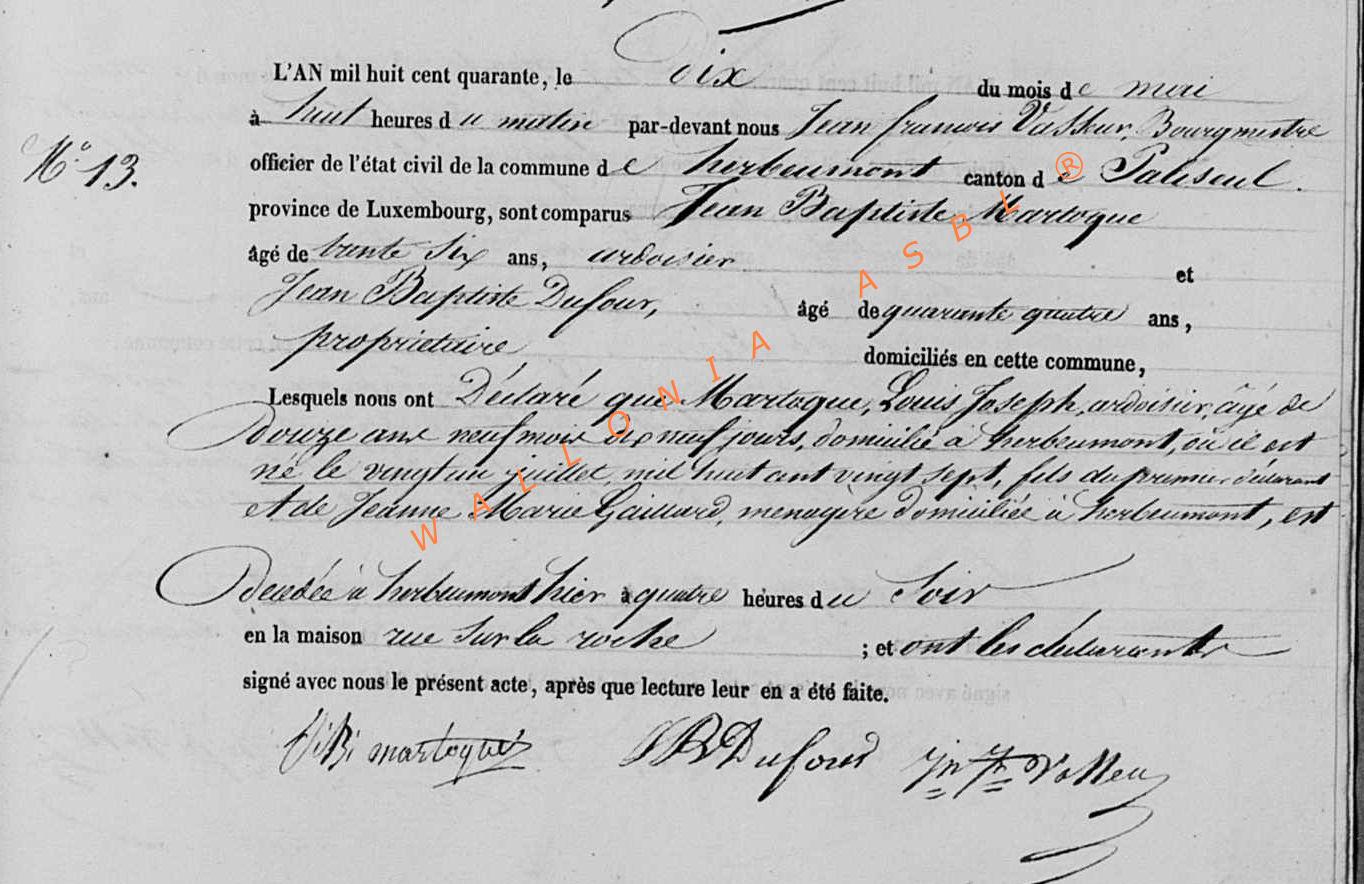 L'AN mil huit cent quarante, le Dix du mois de mai
à huit heures du matin par-devant nous Jean françois Vasseur, Bourgmestre
N.o 13.
officier de l'état civil de la commune de herbeumont canton de Paliseul.
province de Luxembourg, sont comparus Jean Baptiste Martoque
âgé de trente six ans, ardoisier et
Jean Baptiste Dufour, âgé de quarante quatre ans,
propriétaire domiciliés en cette commune,
Lesquels nous ont Déclaré que Martoque, Louis Joseph, ardoisier, âgé de
Douze ans neuf mois dix neuf jours, domicilié à herbeumont, où il est
né le vingt un juillet, mil huit cent vingt sept, fils du premier déclarant
et de Jeanne Marie Gaillard, menagère domiciliée à herbeumont, est
Décédé à herbeumont hier à quatre heures du Soir
en la maison rue Sur la roche ; et ont les déclarants
signé avec nous le présent acte, après que lecture leur en a été faite.
J: B: martoque JB Dufour
WALLONIA ASBL ®